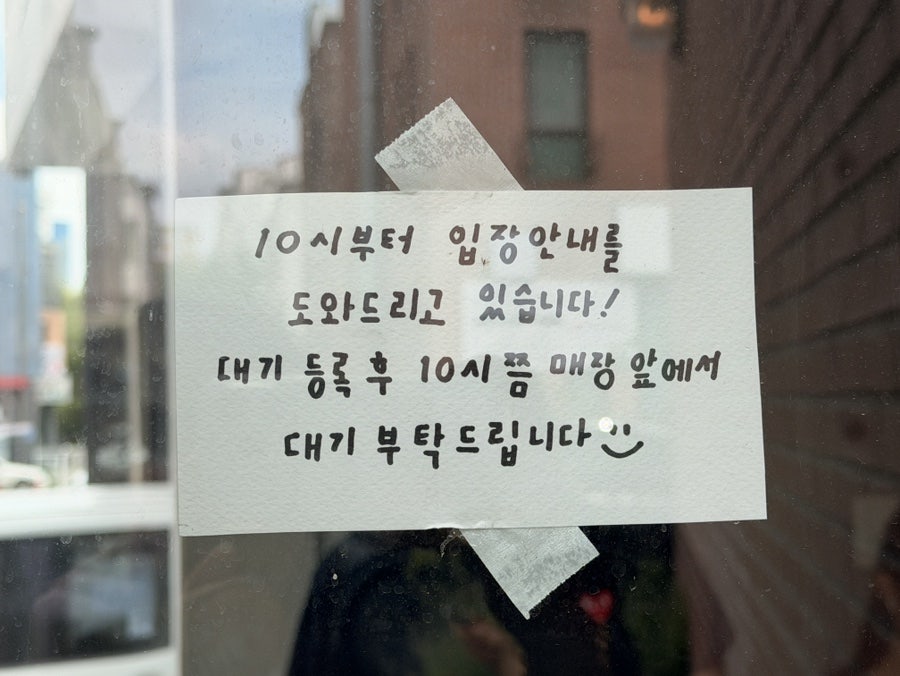 10시부터 입장안내를
도와드리고 있습니다!
대기 등록 후 10시쯤 매장 앞에서
대기 부탁드립니다